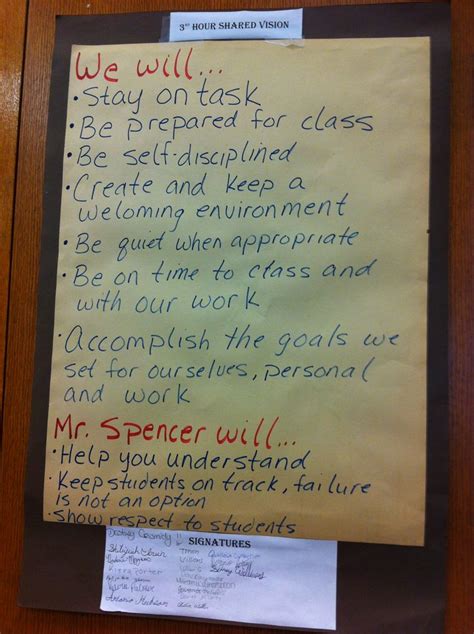 3RD HOUR SHARED VISION
We will...
• Stay on task
• Be prepared for class
• Be self-disciplined
• Create and keep a
weloming environment
• Be quiet when appropriate
• Be on time to class and
with our work
• Accomplish the goals we
set for ourselves, personal
and work
Mr. Spencer will...
• Help you understand
• Keep students on track, failure
is not an option
• Show respect to students
SIGNATURES